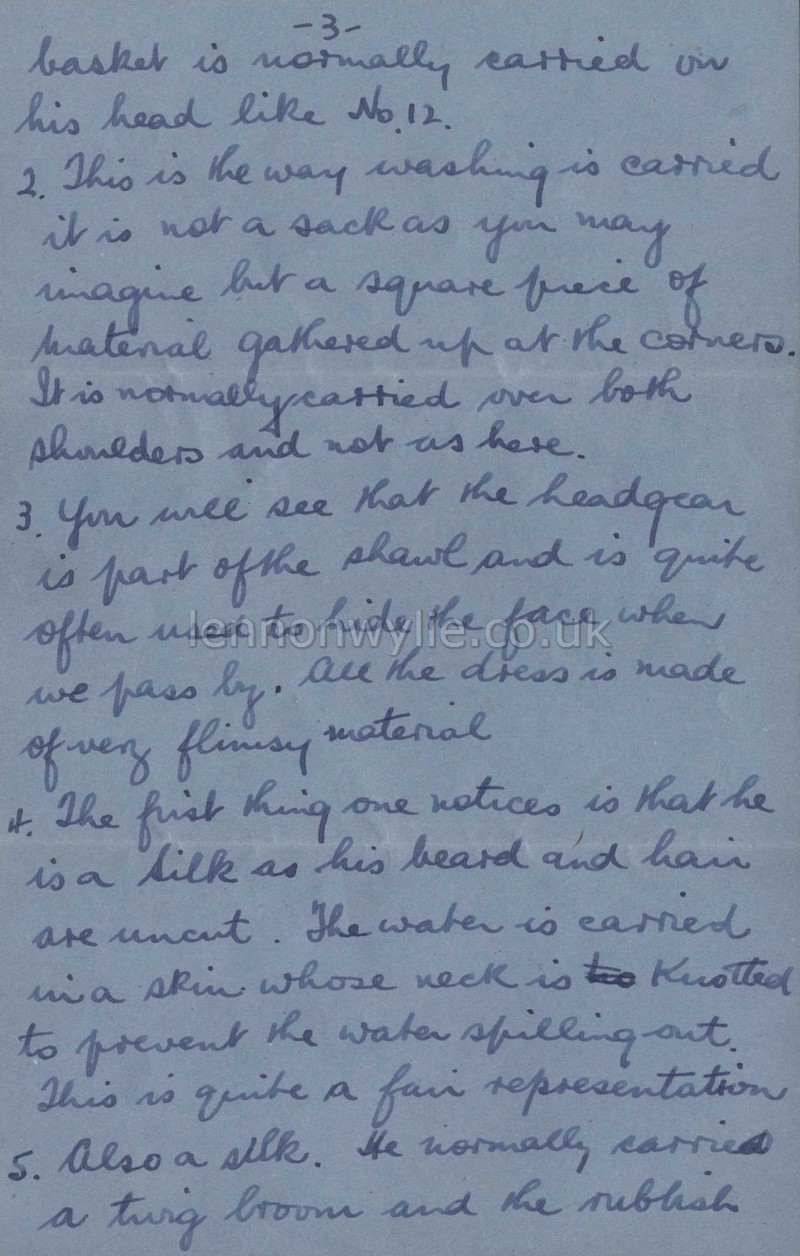 -3-
basket is normally carried on
his head like No. 12.
2. This is the way washing is carried
it is not a sack as you may
imagine but a square piece of
material gathered up at the corners.
It is normally carried over both
shoulders and not as here.
3. You will see that the headgear
is part of the shawl and is quite
often used to hide the face when
lennonwylie.co.uk
we pass by. All the dress is made
of very flimsy material
4. The first thing one notices is that he
is a Silk as his beard and hair
are uncut. The water is carried
in a skin whose neck is to Knotted
to prevent the water spilling out.
This is quite a fair representation
5. Also a silk. He normally carried
a twig broom and the rubbish